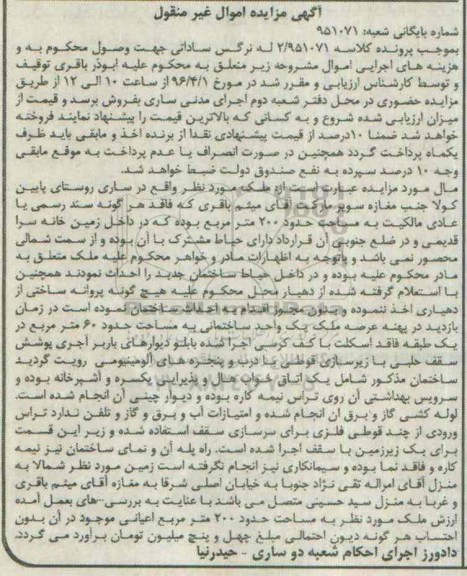 آگهی مزایده اموال غیر منقول
شماره بایگانی شعبه: ۹۵۱۰۷۱
بموجب پرونده کلاسه ۲/۹۵۱۰۷۱ له نرگس ساداتی جهت وصول محکوم به و
هزینه های اجرایی اموال مشروحه زیر متعلق به محکوم علیه ابوذر باقری توقیف
و توسط کارشناس ارزیابی و مقرر شد در مورخ ۹۶/۴/۱ از ساعت ۱۰ الی ۱۲ از طریق
مزایده حضوری در محل دفتر شعبه دوم اجرای مدنی ساری بفروش برسد و قیمت از
میزان ارزیابی شده شروع و به کسانی که بالاترین قیمت را پیشنهاد نمایند فروخته
خواهد شد ضمنا ۱۰درصد از قیمت پیشنهادی نقدا از برنده اخذ و مابقی باید ظرف
یکماه پرداخت گردد همچنین در صورت انصراف یا عدم پرداخت به موقع مابقی
وجه ۱۰ درصد سپرده به نفع صندوق دولت ضبط خواهد شد.
مال مورد مزایده عبارت است از ملک مورد نظر واقع در ساری روستای پایین
کولا جنب مغازه سوپر مارکت آقای میثم باقری که فاقد هر گونه سند رسمی یا
عادی مالکیت به مساحت حدود ۲۰۰ متر مربع بوده که در داخل زمین خانه سرا
قدیمی و در ضلع جنوبی آن قرارداد دارای حیاط مشترک با آن بوده و از سمت شمالی
محصور نمی باشد و باتوجه به اظهارات مادر و خواهر محکوم علیه ملک متعلق به
مادر محکوم علیه بوده و در داخل حیاط ساختمان جدید را احداث نمودند همچنین
با استعلام گرفته شده از دهیار محل محکوم علیه هیچ گونه پروانه ساختی از
دهیاری اخذ ننموده و بدون مجوز اقدام به احداث ساختمان نموده است در زمان
بازدید در پهنه عرصه ملک یک واحد ساختمانی به مساحت حدود ۶۰ متر مربع در
یک طبقه فاقد اسکلت با کف کرسی اجرا شده بابلو دیوارهای باربر آجری پوشش
سقف حلبی با زیرسازی قوطی با درب و پنجره های آلومینیومی رویت گردید
ساختمان مذکور شامل یک اتاق خواب هال و پذیرایی یکسره و آشپزخانه بوده و
سرویس بهداشتی آن روی تراس نیمه کاره بوده و دیوار چینی آن انجام شده است.
لوله کشی گاز و برق ان انجام شده و امتیازات آب و برق و گاز و تلفن ندارد تراس
ورودی از چند قوطی فلزی برای سرسازی سقف استفاده شده و زیر این قسمت
برای یک زیرزمین با سقف اجرا شده است. راه پله آن و نمای ساختمان نیز نیمه
کاره و فاقد نما بوده و سیمانکاری نیز انجام نگرفته است زمین مورد نظر شمالا به
منزل آقای امراله تقی نژاد جنوبا به خیابان اصلی شرقا به مغازه آقای میثم باقری
و غربا به منزل سید حسینی متصل می باشد با عنایت به بررسی های بعمل آمده
ارزش ملک مورد نظر به مساحت حدود ۲۰۰ متر مربع اعیانی موجود در آن بدون
احتساب هر گونه دیون احتمالی مبلغ چهل و پنج میلیون تومان برآورد می گردد.
دادورز اجرای احکام شعبه دو ساری - حیدرنیا